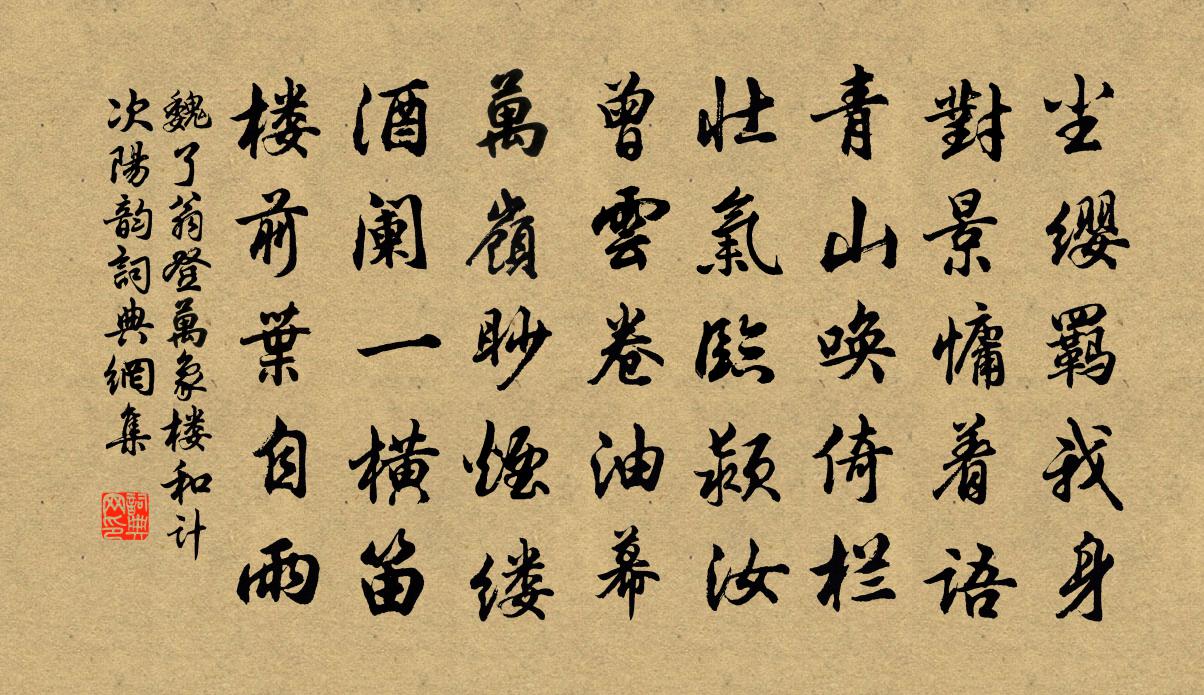 尘缨羁我身
對景慵着语
青山唤倚栏
壮氣臨颍汝
曾雲卷油幕
萬嶺眇煙缕
酒阑一横笛
楼前葉自雨
魏了翁登萬象楼和计
次陽韵詞典網集
詞典网印